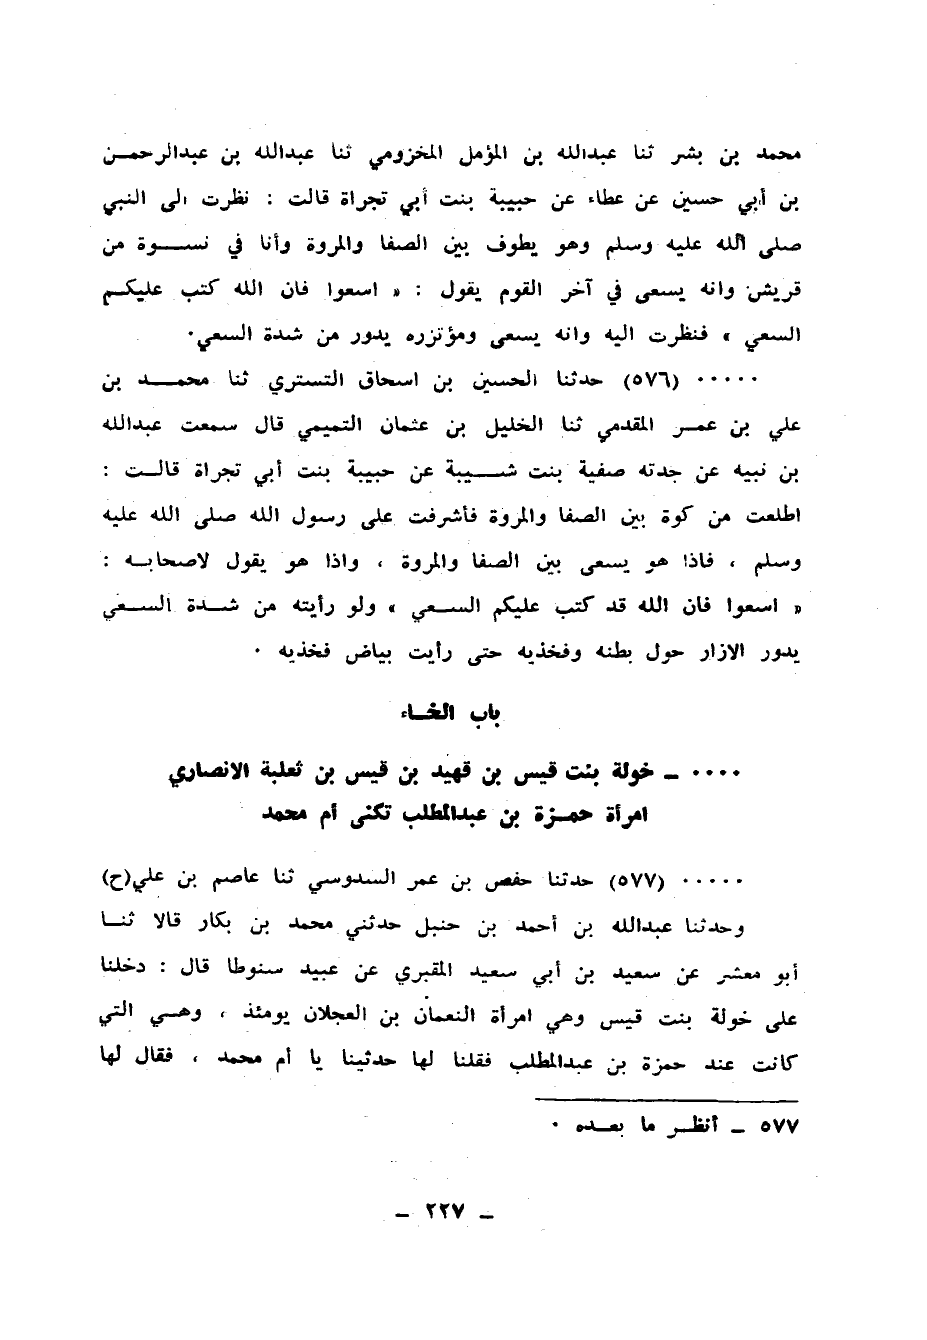 محمد بن بشر ثنا عبدالله بن المؤمل المخزومي ثنا عبدالله بن عبدالرحمن
بن أبي حسين عن عطاء عن حبيبة بنت أبي تجراة قالت : نظرت الى النبي
صلى الله عليه وسلم وهو يطوف بين الصفا والمروة وأنا في نسوة من
قريش وانه يسعى في آخر القوم يقول : « اسعوا فان الله كتب عليكم
السعي » فنظرت اليه وانه يسعى ومؤتزره يدور من شدة السعي.
..... (٥٧٦) حدثنا الحسين بن اسحاق التستري ثنا محمد بن
علي بن عمر المقدمي ثنا الخليل بن عثمان التميمي قال سمعت عبدالله
بن نبيه عن جدته صفية بنت شيبة عن حبيبة بنت أبي تجراة قالت :
اطلعت من كوة بين الصفا والمروة فأشرفت على رسول الله صلى الله عليه
وسلم ، فاذا هو يسعى بين الصفا والمروة ، واذا هو يقول لاصحابه :
« اسعوا فان الله قد كتب عليكم السعي » ولو رأيته من شدة السعي
يدور الازار حول بطنه وفخذيه حتى رأيت بياض فخذيه .
باب الخاء
.... ـ خولة بنت قيس بن قهيد بن قيس بن ثعلبة الانصاري
امرأة حمزة بن عبدالمطلب تكنى أم محمد
..... (٥٧٧) حدثنا حفص بن عمر السدوسي ثنا عاصم بن علي(ح)
وحدثنا عبدالله بن أحمد بن حنبل حدثني محمد بن بكار قالا ثنا
أبو معشر عن سعيد بن أبي سعيد المقبري عن عبيد سنوطا قال : دخلنا
على خولة بنت قيس وهي امرأة النعمان بن العجلان يومئذ ، وهي التي
كانت عند حمزة بن عبدالمطلب فقلنا لها حدثينا يا أم محمد ، فقال لها
٥٧٧ ـ أنظر ما بعده .
ـ ٢٢٧ ـ